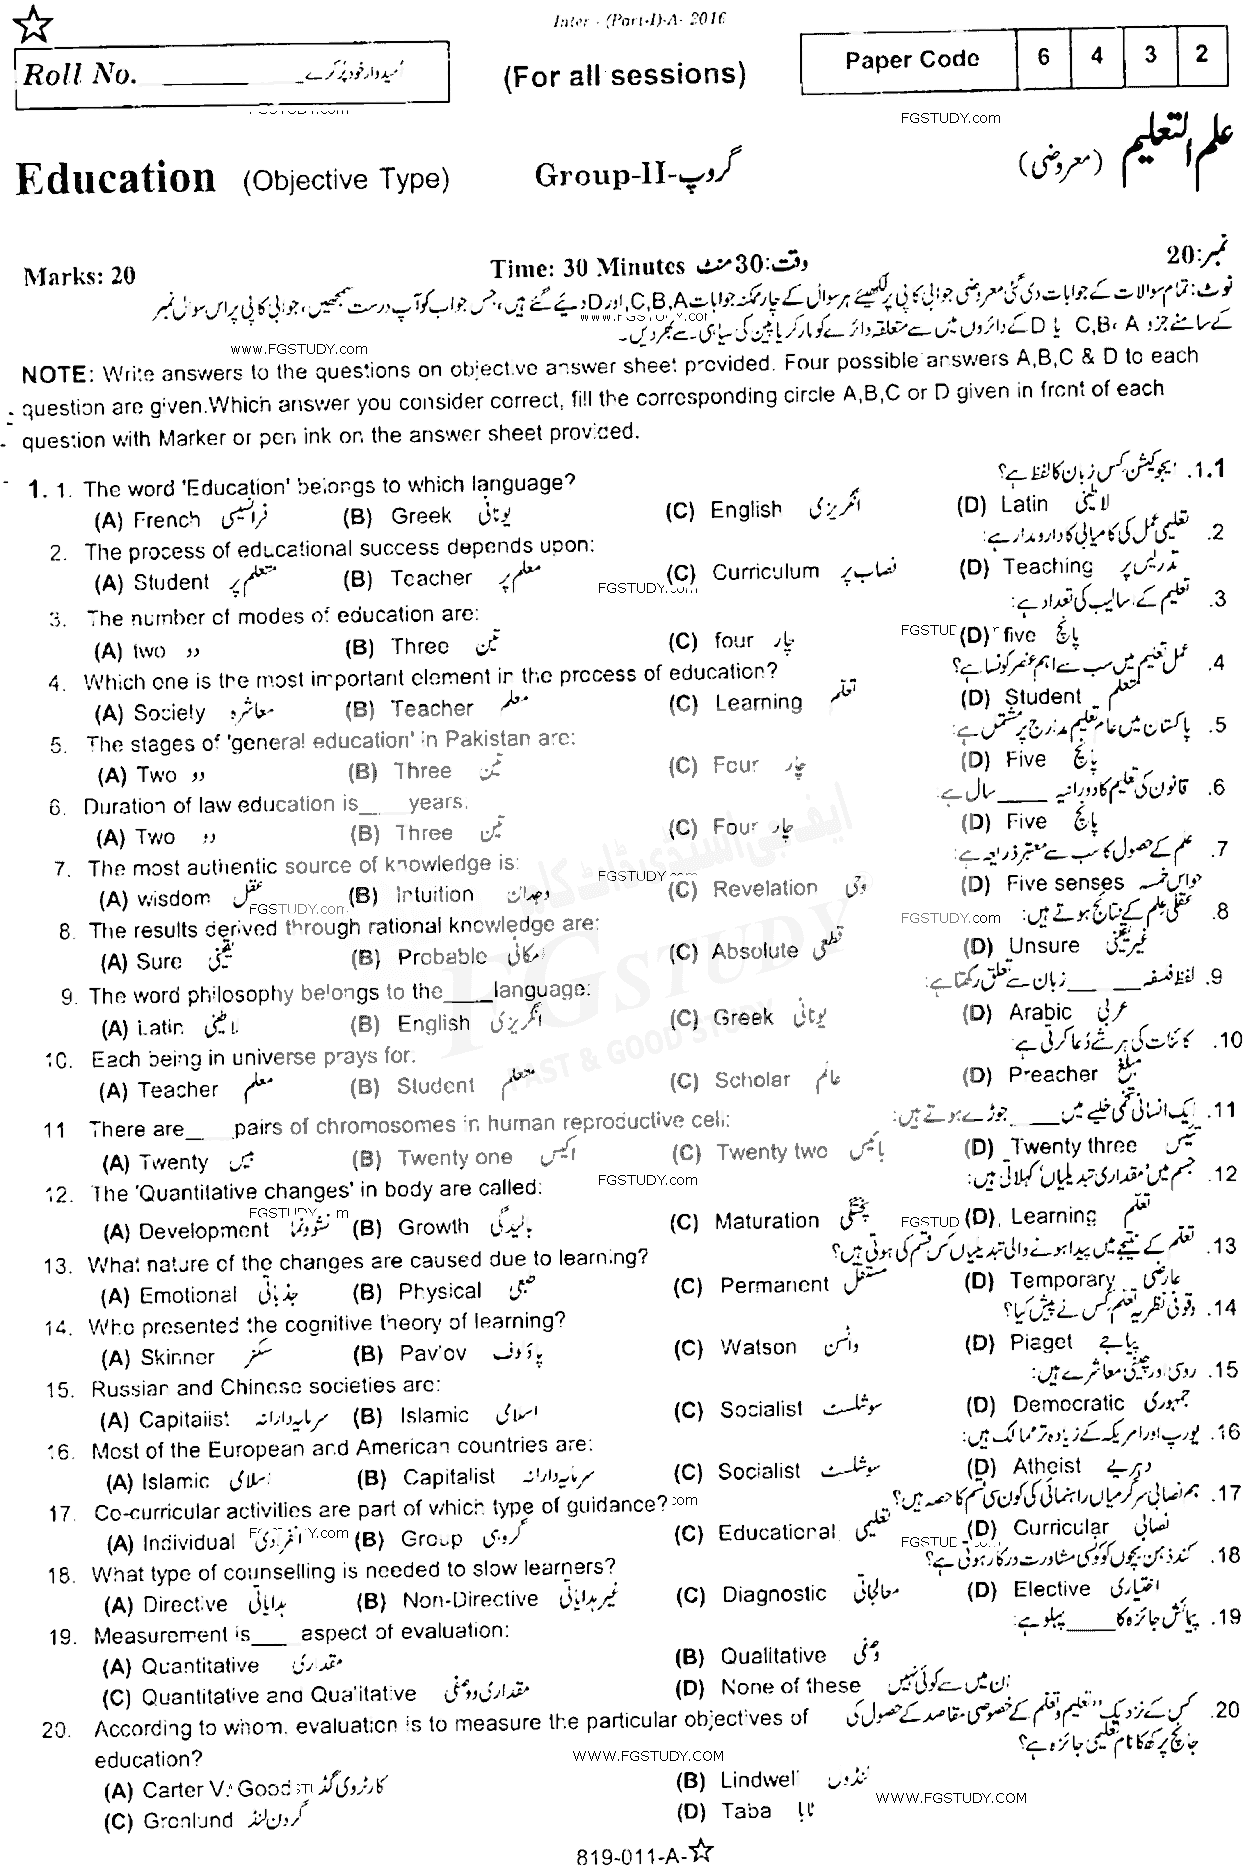 Inter - (Part-I)-A- 2016
Roll No. ________ امیدوار خود پُر کرے۔
(For all sessions)
Paper Code 6 4 3 2
FGSTUDY.com
Education (Objective Type) Group-II-گروپ علم التعلیم (معروضی)
Marks: 20 Time: 30 Minutes وقت:30 منٹ نمبر:20
نوٹ: تمام سوالات کے جوابات دی گئی معروضی جوابی کاپی پر لکھیئے ہر سوال کے چار ممکنہ جوابات C,B,A اور D دیئے گئے ہیں، جس جواب کو آپ درست سمجھیں، جوابی کاپی پر اس سوال نمبر
کے سامنے جزو C,B، A یا D کے دائروں میں سے متعلقہ دائرے کو مارکر یا پین کی سیاہی سے بھر دیں۔
www.FGSTUDY.com
NOTE: Write answers to the questions on objective answer sheet provided. Four possible answers A,B,C & D to each
question are given.Which answer you consider correct, fill the corresponding circle A,B,C or D given in front of each
question with Marker or pen ink on the answer sheet provided.
1. 1. The word 'Education' belongs to which language? 1.1. ایجوکیشن کس زبان کا لفظ ہے؟
(A) French فرانسیسی (B) Greek یونانی (C) English انگریزی (D) Latin لاطینی
2. The process of educational success depends upon: 2. تعلیمی عمل کی کامیابی کا دارومدار ہے:
(A) Student متعلم پر (B) Teacher معلم پر (C) Curriculum نصاب پر (D) Teaching تدریس پر
3. The number of modes of education are: 3. تعلیم کے اسالیب کی تعداد ہے:
(A) two دو (B) Three تین (C) four چار (D) five پانچ
4. Which one is the most important element in the process of education? 4. عمل تعلیم میں سب سے اہم عنصر کونسا ہے؟
(A) Society معاشرہ (B) Teacher معلم (C) Learning تعلم (D) Student متعلم
5. The stages of 'general education' in Pakistan are: 5. پاکستان میں عام تعلیم مدارج پر مشتمل ہے:
(A) Two دو (B) Three تین (C) Four چار (D) Five پانچ
6. Duration of law education is____ years. 6. قانون کی تعلیم کا دورانیہ ____ سال ہے۔
(A) Two دو (B) Three تین (C) Four چار (D) Five پانچ
7. The most authentic source of knowledge is: 7. علم کے حصول کا سب سے معتبر ذریعہ ہے:
(A) wisdom عقل (B) Intuition وجدان (C) Revelation وحی (D) Five senses حواس خمسہ
8. The results derived through rational knowledge are: 8. عقلی علم کے نتائج ہوتے ہیں:
(A) Sure یقینی (B) Probable امکانی (C) Absolute قطعی (D) Unsure غیر یقینی
9. The word philosophy belongs to the____language: 9. لفظ فلسفہ ____ زبان سے تعلق رکھتا ہے:
(A) Latin لاطینی (B) English انگریزی (C) Greek یونانی (D) Arabic عربی
10. Each being in universe prays for. 10. کائنات کی ہر شے دُعا کرتی ہے:
(A) Teacher معلم (B) Student متعلم (C) Scholar عالم (D) Preacher مبلغ
11 There are____pairs of chromosomes in human reproductive cell: 11. ایک انسانی تخمی خلیے میں____ جوڑے ہوتے ہیں:
(A) Twenty بیس (B) Twenty one اکیس (C) Twenty two بائیس (D) Twenty three تئیس
12. The 'Quantitative changes' in body are called: 12. جسم میں 'مقداری تبدیلیاں' کہلاتی ہیں:
(A) Development نشوونما (B) Growth بالیدگی (C) Maturation پختگی (D) Learning تعلم
13. What nature of the changes are caused due to learning? 13. تعلم کے نتیجے میں پیدا ہونے والی تبدیلیاں کس قسم کی ہوتی ہیں؟
(A) Emotional جذباتی (B) Physical طبعی (C) Permanent مستقل (D) Temporary عارضی
14. Who presented the cognitive theory of learning? 14. وقوفی نظریہ تعلم کس نے پیش کیا؟
(A) Skinner سکنر (B) Pavlov پاؤلوف (C) Watson واٹسن (D) Piaget پیاجے
15. Russian and Chinese societies are: 15. روسی اور چینی معاشرے ہیں:
(A) Capitalist سرمایہ دارانہ (B) Islamic اسلامی (C) Socialist سوشلسٹ (D) Democratic جمہوری
16. Most of the European and American countries are: 16. یورپ اور امریکہ کے زیادہ تر ممالک ہیں:
(A) Islamic اسلامی (B) Capitalist سرمایہ دارانہ (C) Socialist سوشلسٹ (D) Atheist دہریے
17. Co-curricular activities are part of which type of guidance? 17. ہم نصابی سرگرمیاں راہنمائی کی کون سی قسم کا حصہ ہیں؟
(A) Individual انفرادی (B) Group گروہی (C) Educational تعلیمی (D) Curricular نصابی
18. What type of counselling is needed to slow learners? 18. کند ذہن بچوں کو کونسی مشاورت درکار ہوتی ہے؟
(A) Directive ہدایاتی (B) Non-Directive غیر ہدایاتی (C) Diagnostic معالجاتی (D) Elective اختیاری
19. Measurement is____ aspect of evaluation: 19. پیمائش جائزہ کا____پہلو ہے:
(A) Quantitative مقداری (B) Qualitative وصفی
(C) Quantitative and Qualitative مقداری ووصفی (D) None of these ان میں سے کوئی نہیں
20. According to whom, evaluation is to measure the particular objectives of 20. کس کے نزدیک "تعلیم وتعلم کے خصوصی مقاصد کے حصول کی
education? جانچ پرکھ کا نام تعلیمی جائزہ ہے؟
WWW.FGSTUDY.COM
(A) Carter V. Good کارٹروی گڈ (B) Lindwell لنڈول
(C) Gronlund گرون لنڈ (D) Taba ٹابا
WWW.FGSTUDY.COM
819-011-A-☆